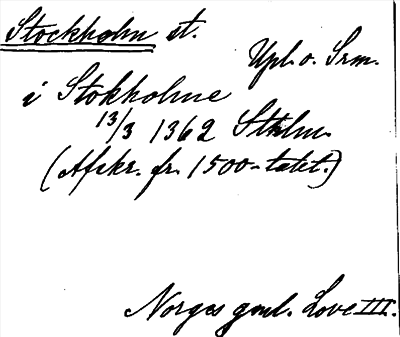 Stockholm st.
Upl. o. Srm.
i Stokholme
13/3 1362 Sthlm.
(Afskr. fr. 1500-talet.)
Norges gml. Love III.